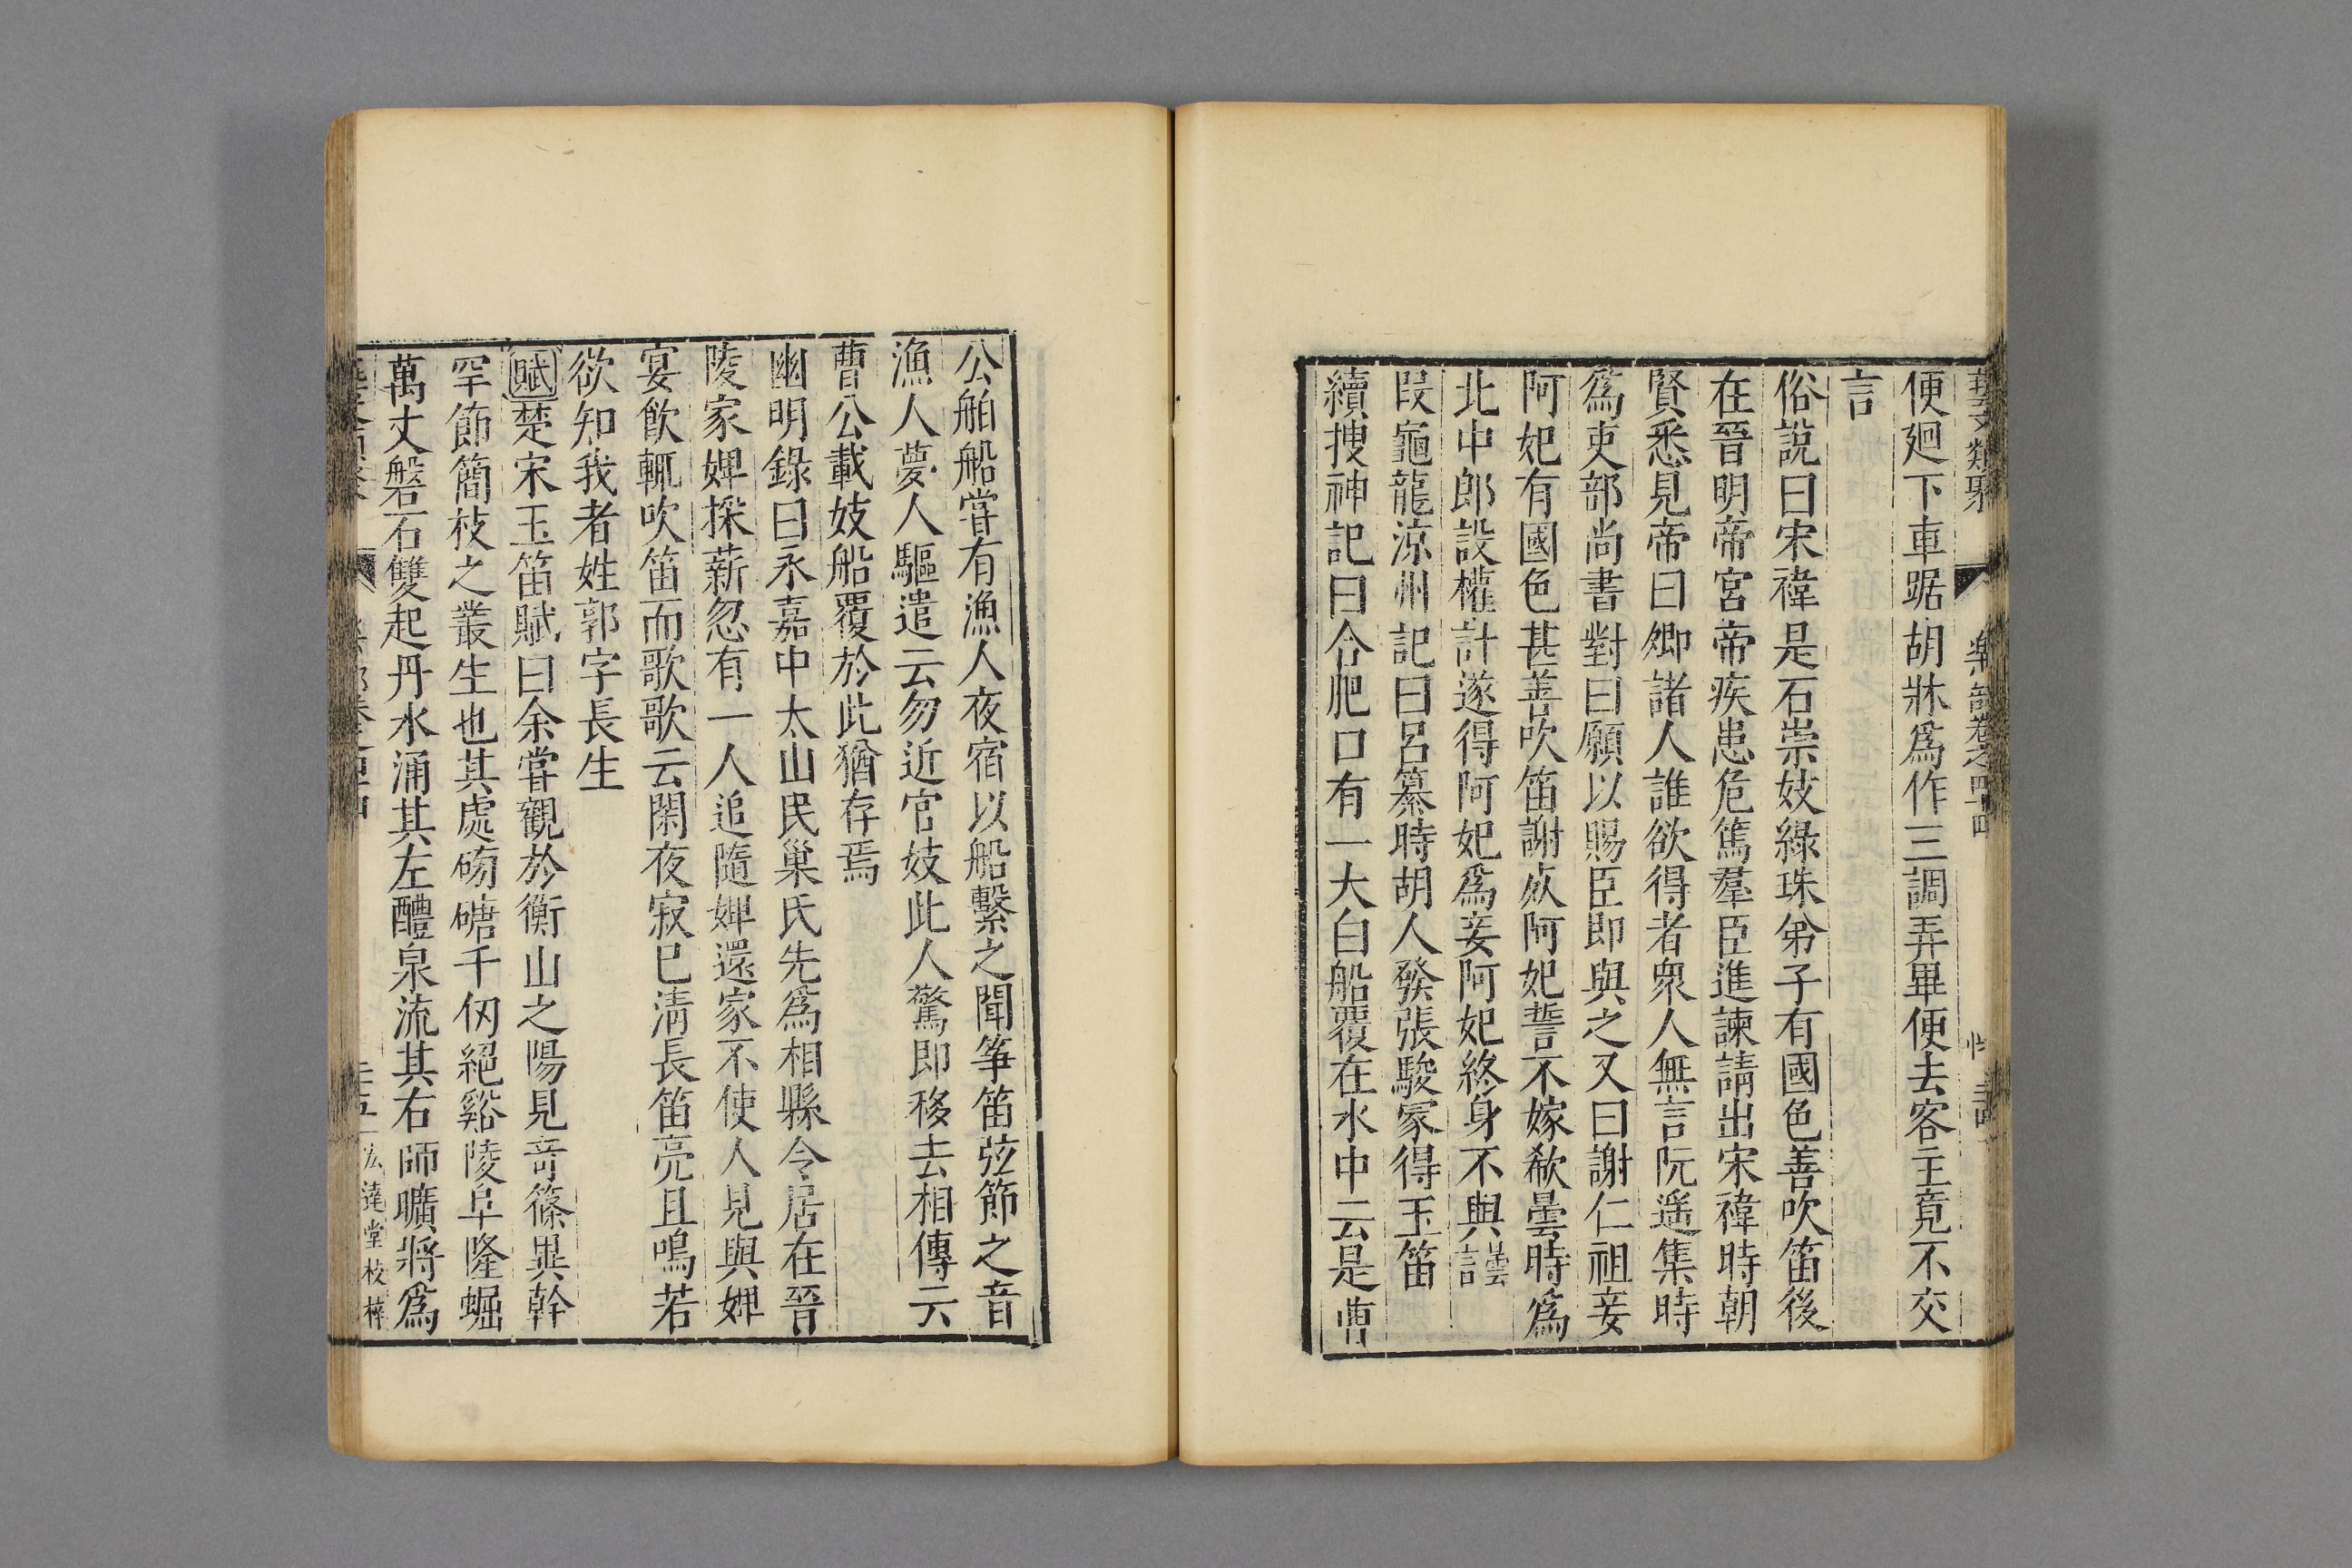 藝文類聚 樂部卷之四十四
便廻下車踞胡牀爲作三調弄畢便去客主竟不交
言
俗說曰宋禕是石崇妓綠珠弟子有國色善吹笛後
在晉明帝宮帝疾患危篤羣臣進諫請出宋禕時朝
賢悉見帝曰卿諸人誰欲得者衆人無言阮遥集時
爲吏部尚書對曰願以賜臣即與之又曰謝仁祖妾
阿妃有國色甚善吹笛謝死阿妃誓不嫁郗曇時爲
北中郎設權計遂得阿妃爲妾阿妃終身不與曇言
段龜龍涼州記曰呂纂時胡人發張駿冢得玉笛
續搜神記曰合肥口有一大白船覆在水中云是曹
公舶船嘗有漁人夜宿以船繫之聞筝笛弦節之音
漁人夢人驅遣云勿近官妓此人驚即移去相傳云
曹公載妓船覆於此猶存焉
幽明錄曰永嘉中太山民巢氏先爲相縣令居在晉
陵家婢採薪忽有一人追隨婢還家不使人見與婢
宴飲輒吹笛而歌歌云閑夜寂已清長笛亮且鳴若
欲知我者姓郭字長生
賦楚宋玉笛賦曰余嘗觀於衡山之陽見奇篠異幹
罕節簡枝之叢生也其處磅磄千仞絕谿陵阜隆崛
萬丈盤石雙起丹水涌其左醴泉流其右師曠將爲
達堂校梓